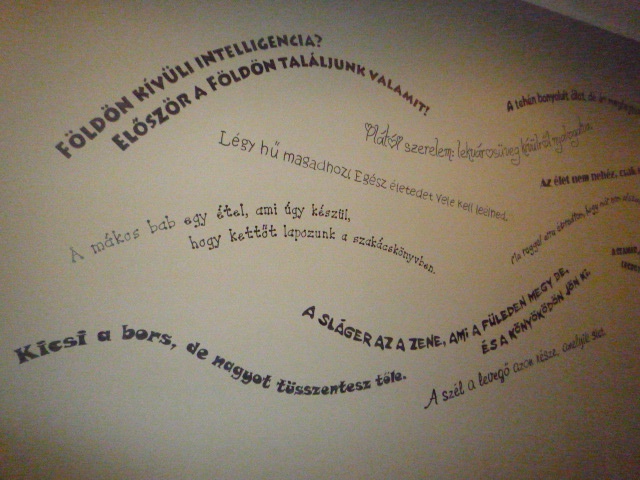 FÖLDÖN KÍVÜLI INTELLIGENCIA?
ELŐSZÖR A FÖLDÖN TALÁLJUNK VALAMIT!
A tehén bonyolult állat, de én
Plátói szerelem: lekvárosüveg kívülről nyalogatva.
Légy hű magadhoz! Egész életedet Vele kell leélned.
Az élet nem nehéz, csak
A mákos bab egy étel, ami úgy készül,
hogy kettőt lapozunk a szakácskönyvben.
Ma reggel arra ébredtem, hogy
A SLÁGER AZ A ZENE, AMI A FÜLEDEN MEGY BE,
ÉS A KÖNYÖKÖDÖN JÖN KI.
Kicsi a bors, de nagyot tüsszentesz tőle.
A szél a levegő azon része, amelyik siet.